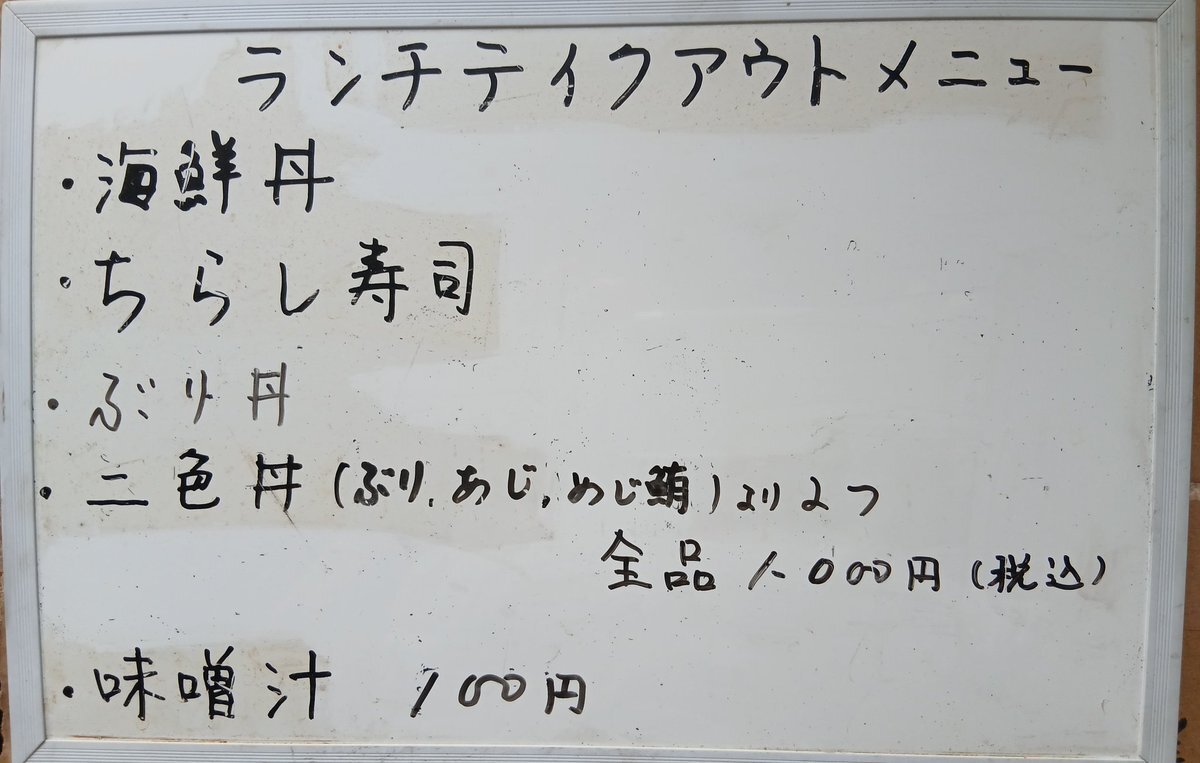 ランチテイクアウトメニュー
・海鮮丼
・ちらし寿司
・ぶり丼
・二色丼(ぶり、あじ、めじ鮪)より2つ
全品 1,000円(税込)
・味噌汁 100円